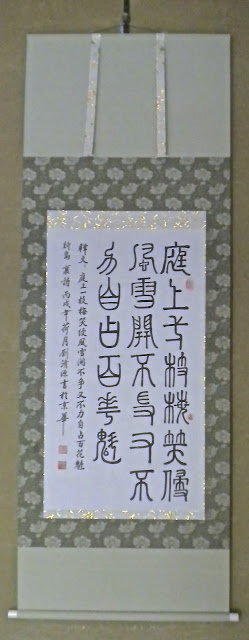 庭上一枝梅笑侵
風雪開不爭又不
力自占百花魁
釋文 庭上一枝梅笑侵風雪開不爭又不力自占百花魁
新島襄詩 丙戌年荷月劉清源書於京華